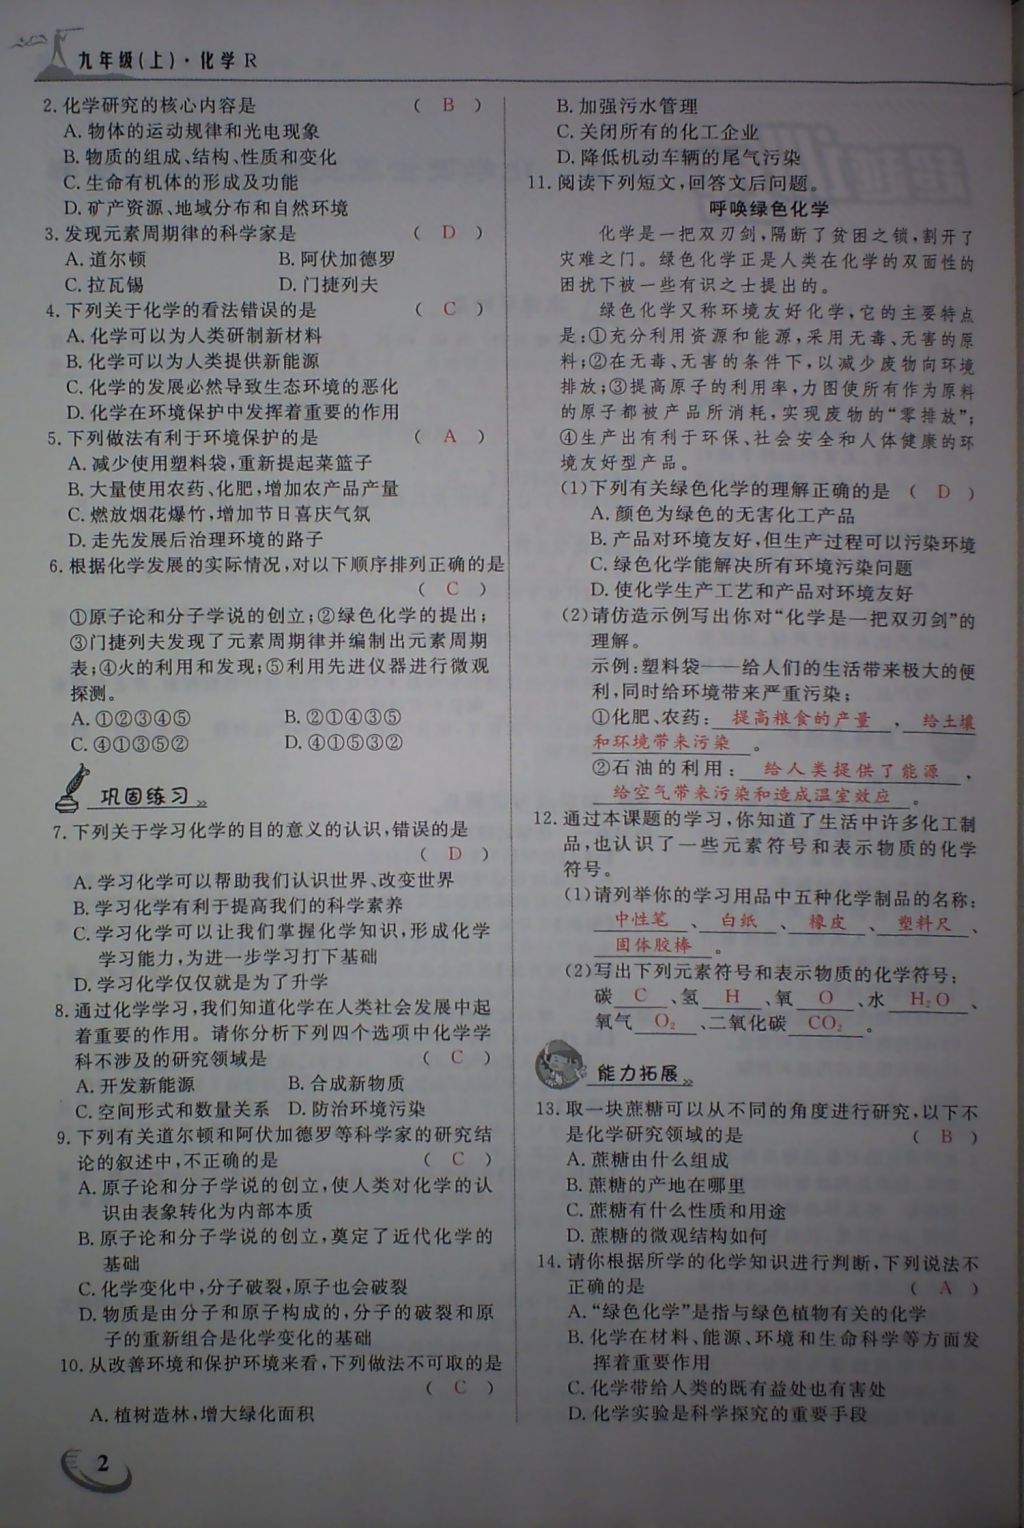 九年级(上)·化学 R
2. 化学研究的核心内容是 ( B )
A. 物体的运动规律和光电现象
B. 物质的组成、结构、性质和变化
C. 生命有机体的形成及功能
D. 矿产资源、地域分布和自然环境
3. 发现元素周期律的科学家是 ( D )
A. 道尔顿 B. 阿伏加德罗
C. 拉瓦锡 D. 门捷列夫
4. 下列关于化学的看法错误的是 ( C )
A. 化学可以为人类研制新材料
B. 化学可以为人类提供新能源
C. 化学的发展必然导致生态环境的恶化
D. 化学在环境保护中发挥着重要的作用
5. 下列做法有利于环境保护的是 ( A )
A. 减少使用塑料袋,重新提起菜篮子
B. 大量使用农药、化肥,增加农产品产量
C. 燃放烟花爆竹,增加节日喜庆气氛
D. 走先发展后治理环境的路子
6. 根据化学发展的实际情况,对以下顺序排列正确的是
( C )
①原子论和分子学说的创立;②绿色化学的提出;
③门捷列夫发现了元素周期律并编制出元素周期
表;④火的利用和发现;⑤利用先进仪器进行微观
探测。
A. ①②③④⑤ B. ②①④③⑤
C. ④①③⑤② D. ④①⑤③②
巩固练习
7. 下列关于学习化学的目的意义的认识,错误的是
( D )
A. 学习化学可以帮助我们认识世界、改变世界
B. 学习化学有利于提高我们的科学素养
C. 学习化学可以让我们掌握化学知识,形成化学
学习能力,为进一步学习打下基础
D. 学习化学仅仅就是为了升学
8. 通过化学学习,我们知道化学在人类社会发展中起
着重要的作用。请你分析下列四个选项中化学学
科不涉及的研究领域是 ( C )
A. 开发新能源 B. 合成新物质
C. 空间形式和数量关系 D. 防治环境污染
9. 下列有关道尔顿和阿伏加德罗等科学家的研究结
论的叙述中,不正确的是 ( C )
A. 原子论和分子学说的创立,使人类对化学的认
识由表象转化为内部本质
B. 原子论和分子学说的创立,奠定了近代化学的
基础
C. 化学变化中,分子破裂,原子也会破裂
D. 物质是由分子和原子构成的,分子的破裂和原
子的重新组合是化学变化的基础
10. 从改善环境和保护环境来看,下列做法不可取的是
( C )
A. 植树造林,增大绿化面积
2
B. 加强污水管理
C. 关闭所有的化工企业
D. 降低机动车辆的尾气污染
11. 阅读下列短文,回答文后问题。
呼唤绿色化学
化学是一把双刃剑,隔断了贫困之锁,割开了
灾难之门。绿色化学正是人类在化学的双面性的
困扰下被一些有识之士提出的。
绿色化学又称环境友好化学,它的主要特点
是:①充分利用资源和能源,采用无毒、无害的原
料;②在无毒、无害的条件下,以减少废物向环境
排放;③提高原子的利用率,力图使所有作为原料
的原子都被产品所消耗,实现废物的“零排放”;
④生产出有利于环保、社会安全和人体健康的环
境友好型产品。
(1)下列有关绿色化学的理解正确的是 ( D )
A. 颜色为绿色的无害化工产品
B. 产品对环境友好,但生产过程可以污染环境
C. 绿色化学能解决所有环境污染问题
D. 使化学生产工艺和产品对环境友好
(2)请仿造示例写出你对“化学是一把双刃剑”的
理解。
示例:塑料袋——给人们的生活带来极大的便
利,同时给环境带来严重污染;
①化肥、农药: 提高粮食的产量 , 给土壤
和环境带来污染 。
②石油的利用: 给人类提供了能源 ,
给空气带来污染和造成温室效应 。
12. 通过本课题的学习,你知道了生活中许多化工制
品,也认识了一些元素符号和表示物质的化学
符号。
(1)请列举你的学习用品中五种化学制品的名称:
中性笔 、 白纸 、 橡皮 、 塑料尺 、
固体胶棒 。
(2)写出下列元素符号和表示物质的化学符号:
碳 C 、氢 H 、氧 O 、水 H₂O 、
氧气 O₂ 、二氧化碳 CO₂ 。
能力拓展
13. 取一块蔗糖可以从不同的角度进行研究,以下不
是化学研究领域的是 ( B )
A. 蔗糖由什么组成
B. 蔗糖的产地在哪里
C. 蔗糖有什么性质和用途
D. 蔗糖的微观结构如何
14. 请你根据所学的化学知识进行判断,下列说法不
正确的是 ( A )
A. “绿色化学”是指与绿色植物有关的化学
B. 化学在材料、能源、环境和生命科学等方面发
挥着重要作用
C. 化学带给人类的既有益处也有害处
D. 化学实验是科学探究的重要手段